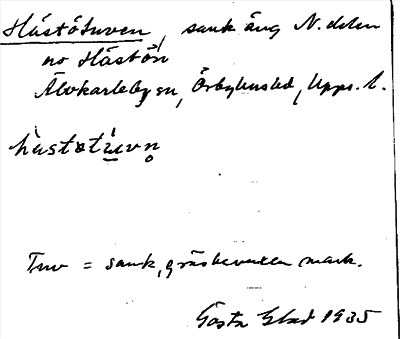 Häståtuven, sank äng N. delen
no Hästön
Älvkarleby sn, Örbyhus hd, Upps. l.
hästɑtu̲vn̥
Tuv = sank, gräsbevuxen mark.
Gösta Glad 1935